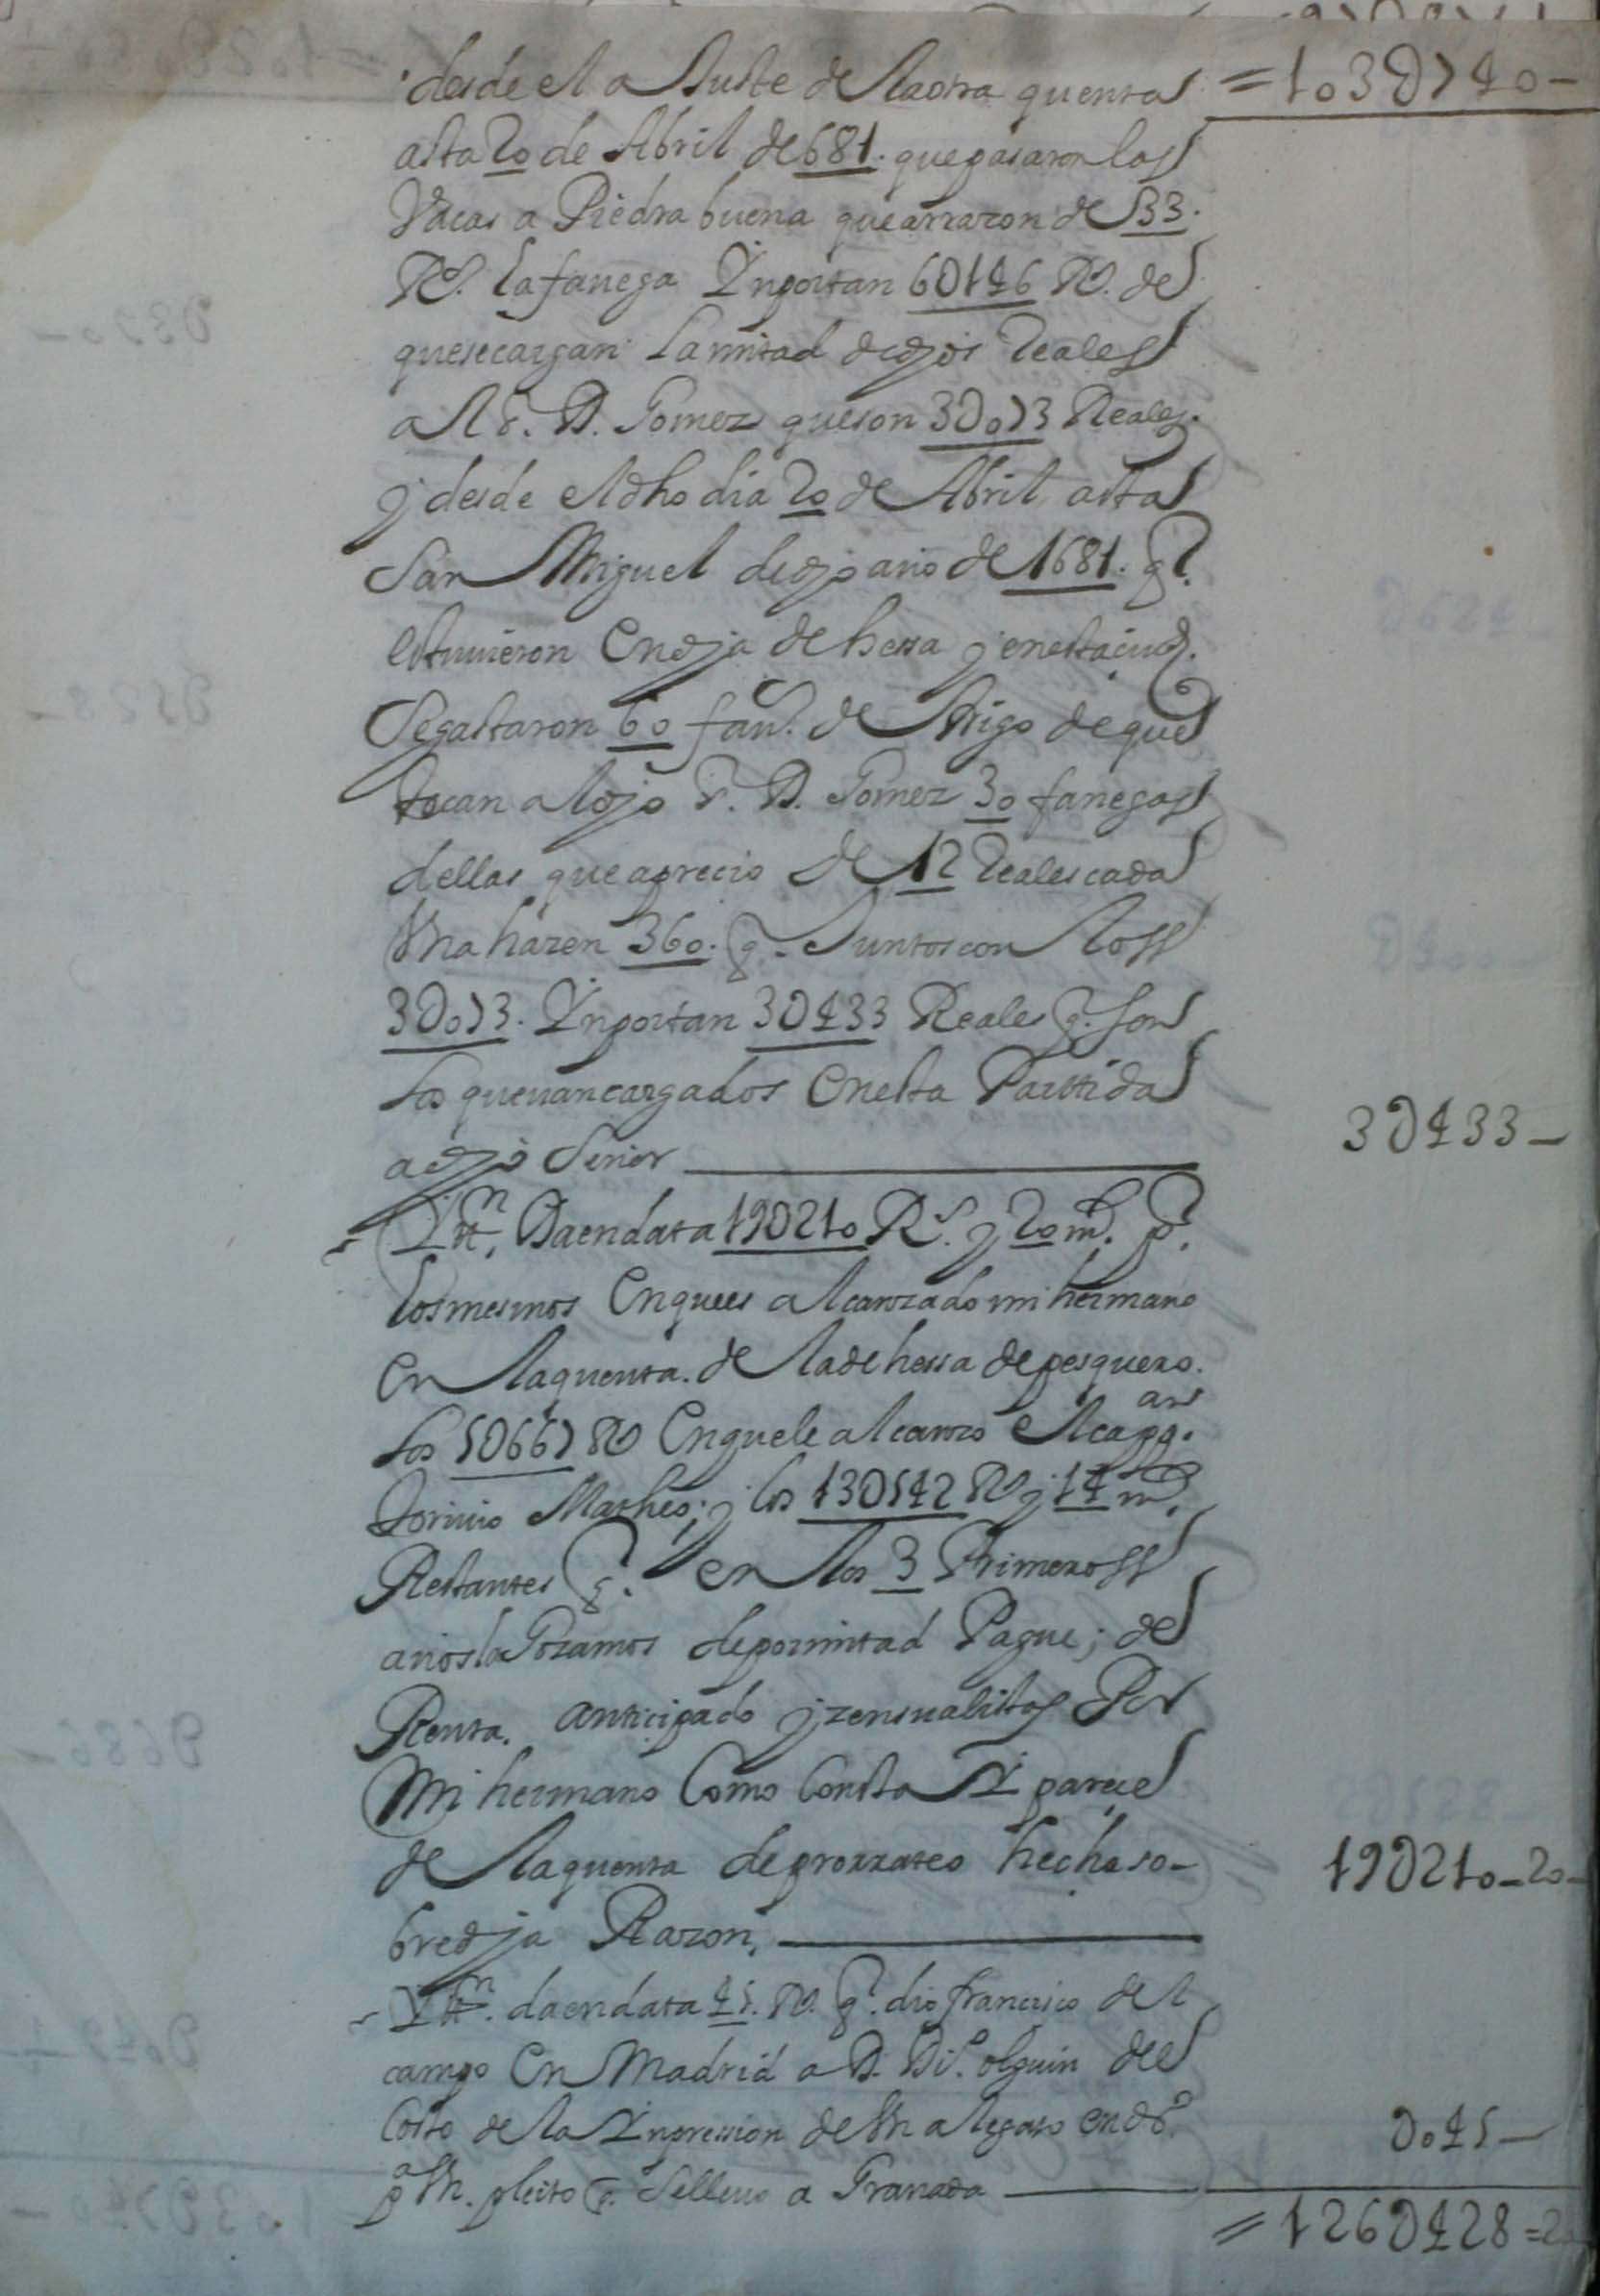 desde el aJuste de la otra quenta = 103D740 -
asta 20 de Abril de 681. que pasaron las
Vacas a Piedra buena que a rrazon de 33.
Rs. la fanega Ynportan 6D146 Rs. de
que se cargan la mitad de djos reales
al Sr. D. Gomez que son 3D073 Reales.
y desde el dho dia 20 de Abril asta
San Miguel de djo año de 1681. q
estuuieron en dja dehessa y en esta ciud.
Se gastaron 60 fans. de trigo de que
tocan al djo Sr. D. Gomez 30 fanegas
dellas que a precio de 12 reales cada
Vna hazen 360. q. Juntos con los
3D073. Ynportan 3D433 Reales q. son
los que uan cargados en esta Partida
a djo Señor 3D433 -
- Ytn. Da en data 19D210 Rs. y 20 ms. p.
los mesmos en que es alcanzado mi hermano
en la quenta. de la dehessa de pesquero.
los 5D667 Rs en que le alcanzo el cappan.
toriuio Matheo; y los 13D542 Rs y 14 ms.
Restantes q. en los 3 Primeros
años la Gozamos de por mitad Pague; de
Renta. anticipado y zensualistas Por
Mi hermano Como Consta Y parece
de la quenta de prorrateo hecha so-
bre dja Razon. 19D210 - 20 -
- Ytn. da en data 45. Rs. q. dio francisco del
campo en Madrid a D. Do. olguin del
Costo de la Ynpression de Vn alegato en dro.
pa Vn. pleito q. se lleuo a Granada D045 -
= 126D428 = 20